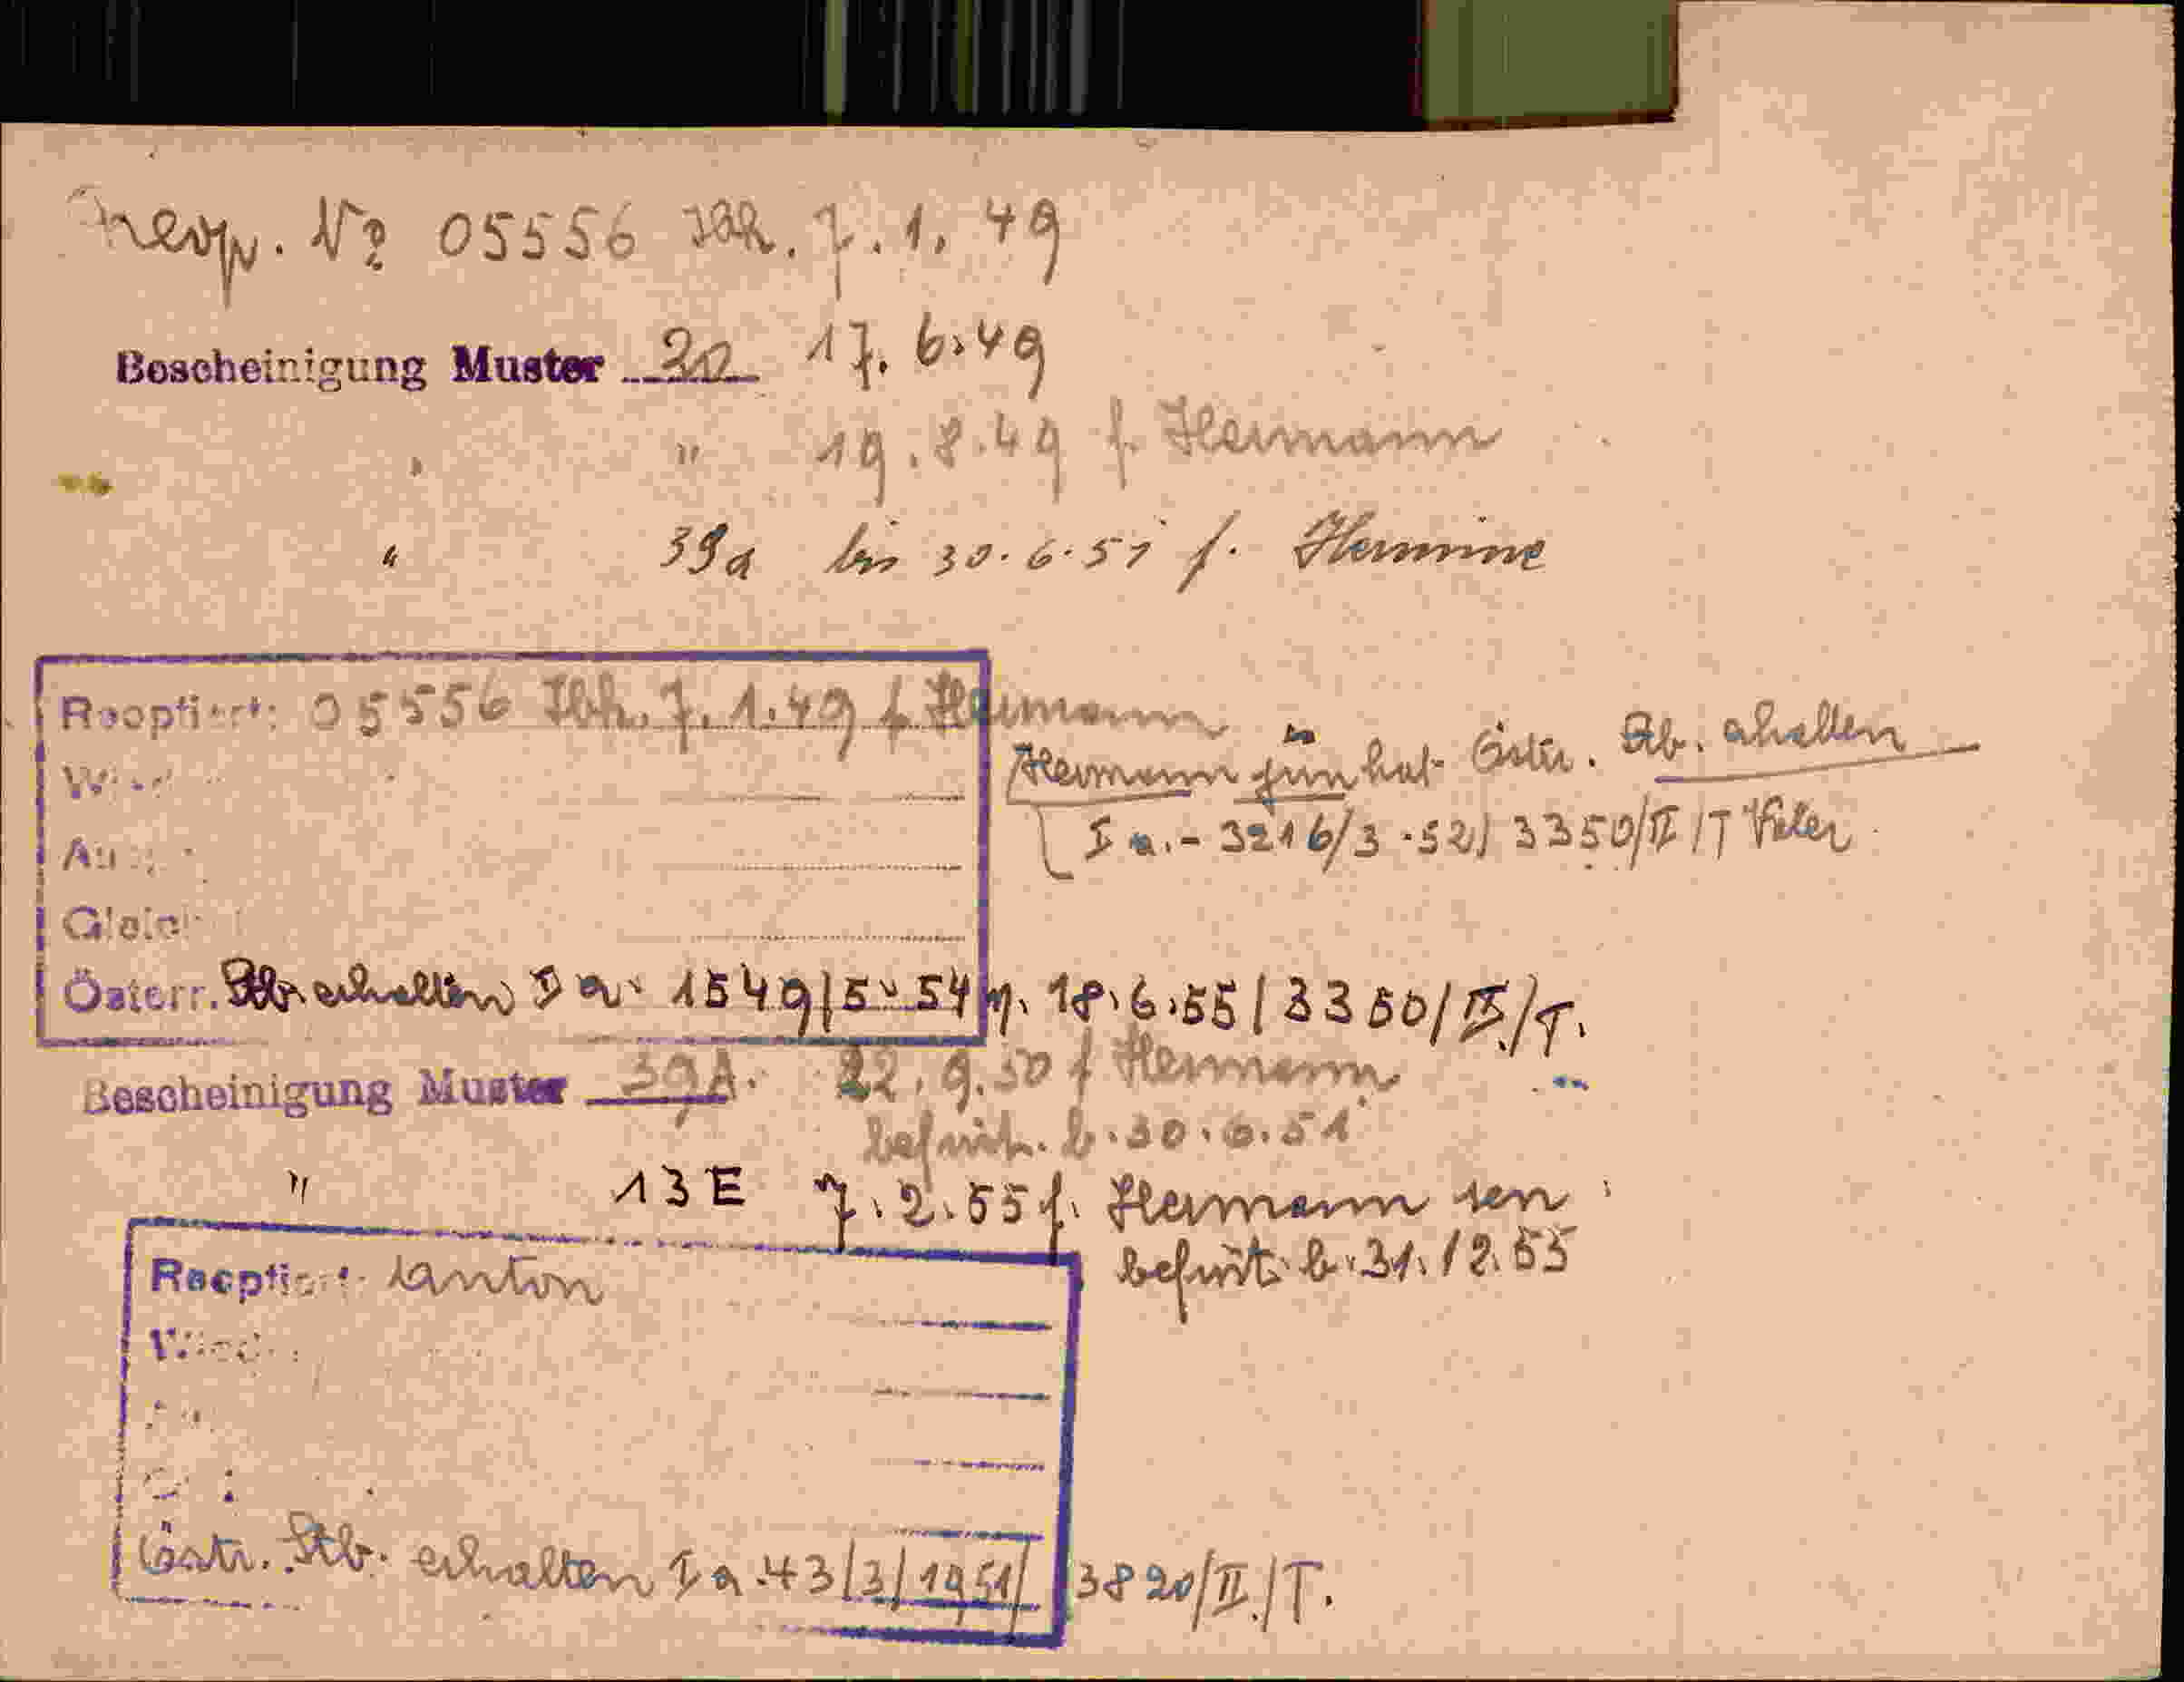 Nº 05556 Ibk. 7.1.49
Bescheinigung Muster 20 17.6.49
" " 19.8.49 f. Hermann
" 39a bis 30.6.51 f. Hermine
Reoptiert: 05556 Ibk. 7.1.49 f. Hermann
Hermann jun hat Östr. Stb. erhalten
Ia.-3216/3.52/3350/II/T
Österr. Stb erhalten Ia. 1549/5.54 v. 18.6.55/3350/II./T.
Bescheinigung Muster 39A. 22.9.50 f Hermann
befrist. b. 30.6.51
" 13E 7.2.55 f. Hermann sen
befrist. b. 31.12.55
Reoptiert: Anton
Östr. Stb. erhalten Ia.43/3/1951/ 3820/II./T.